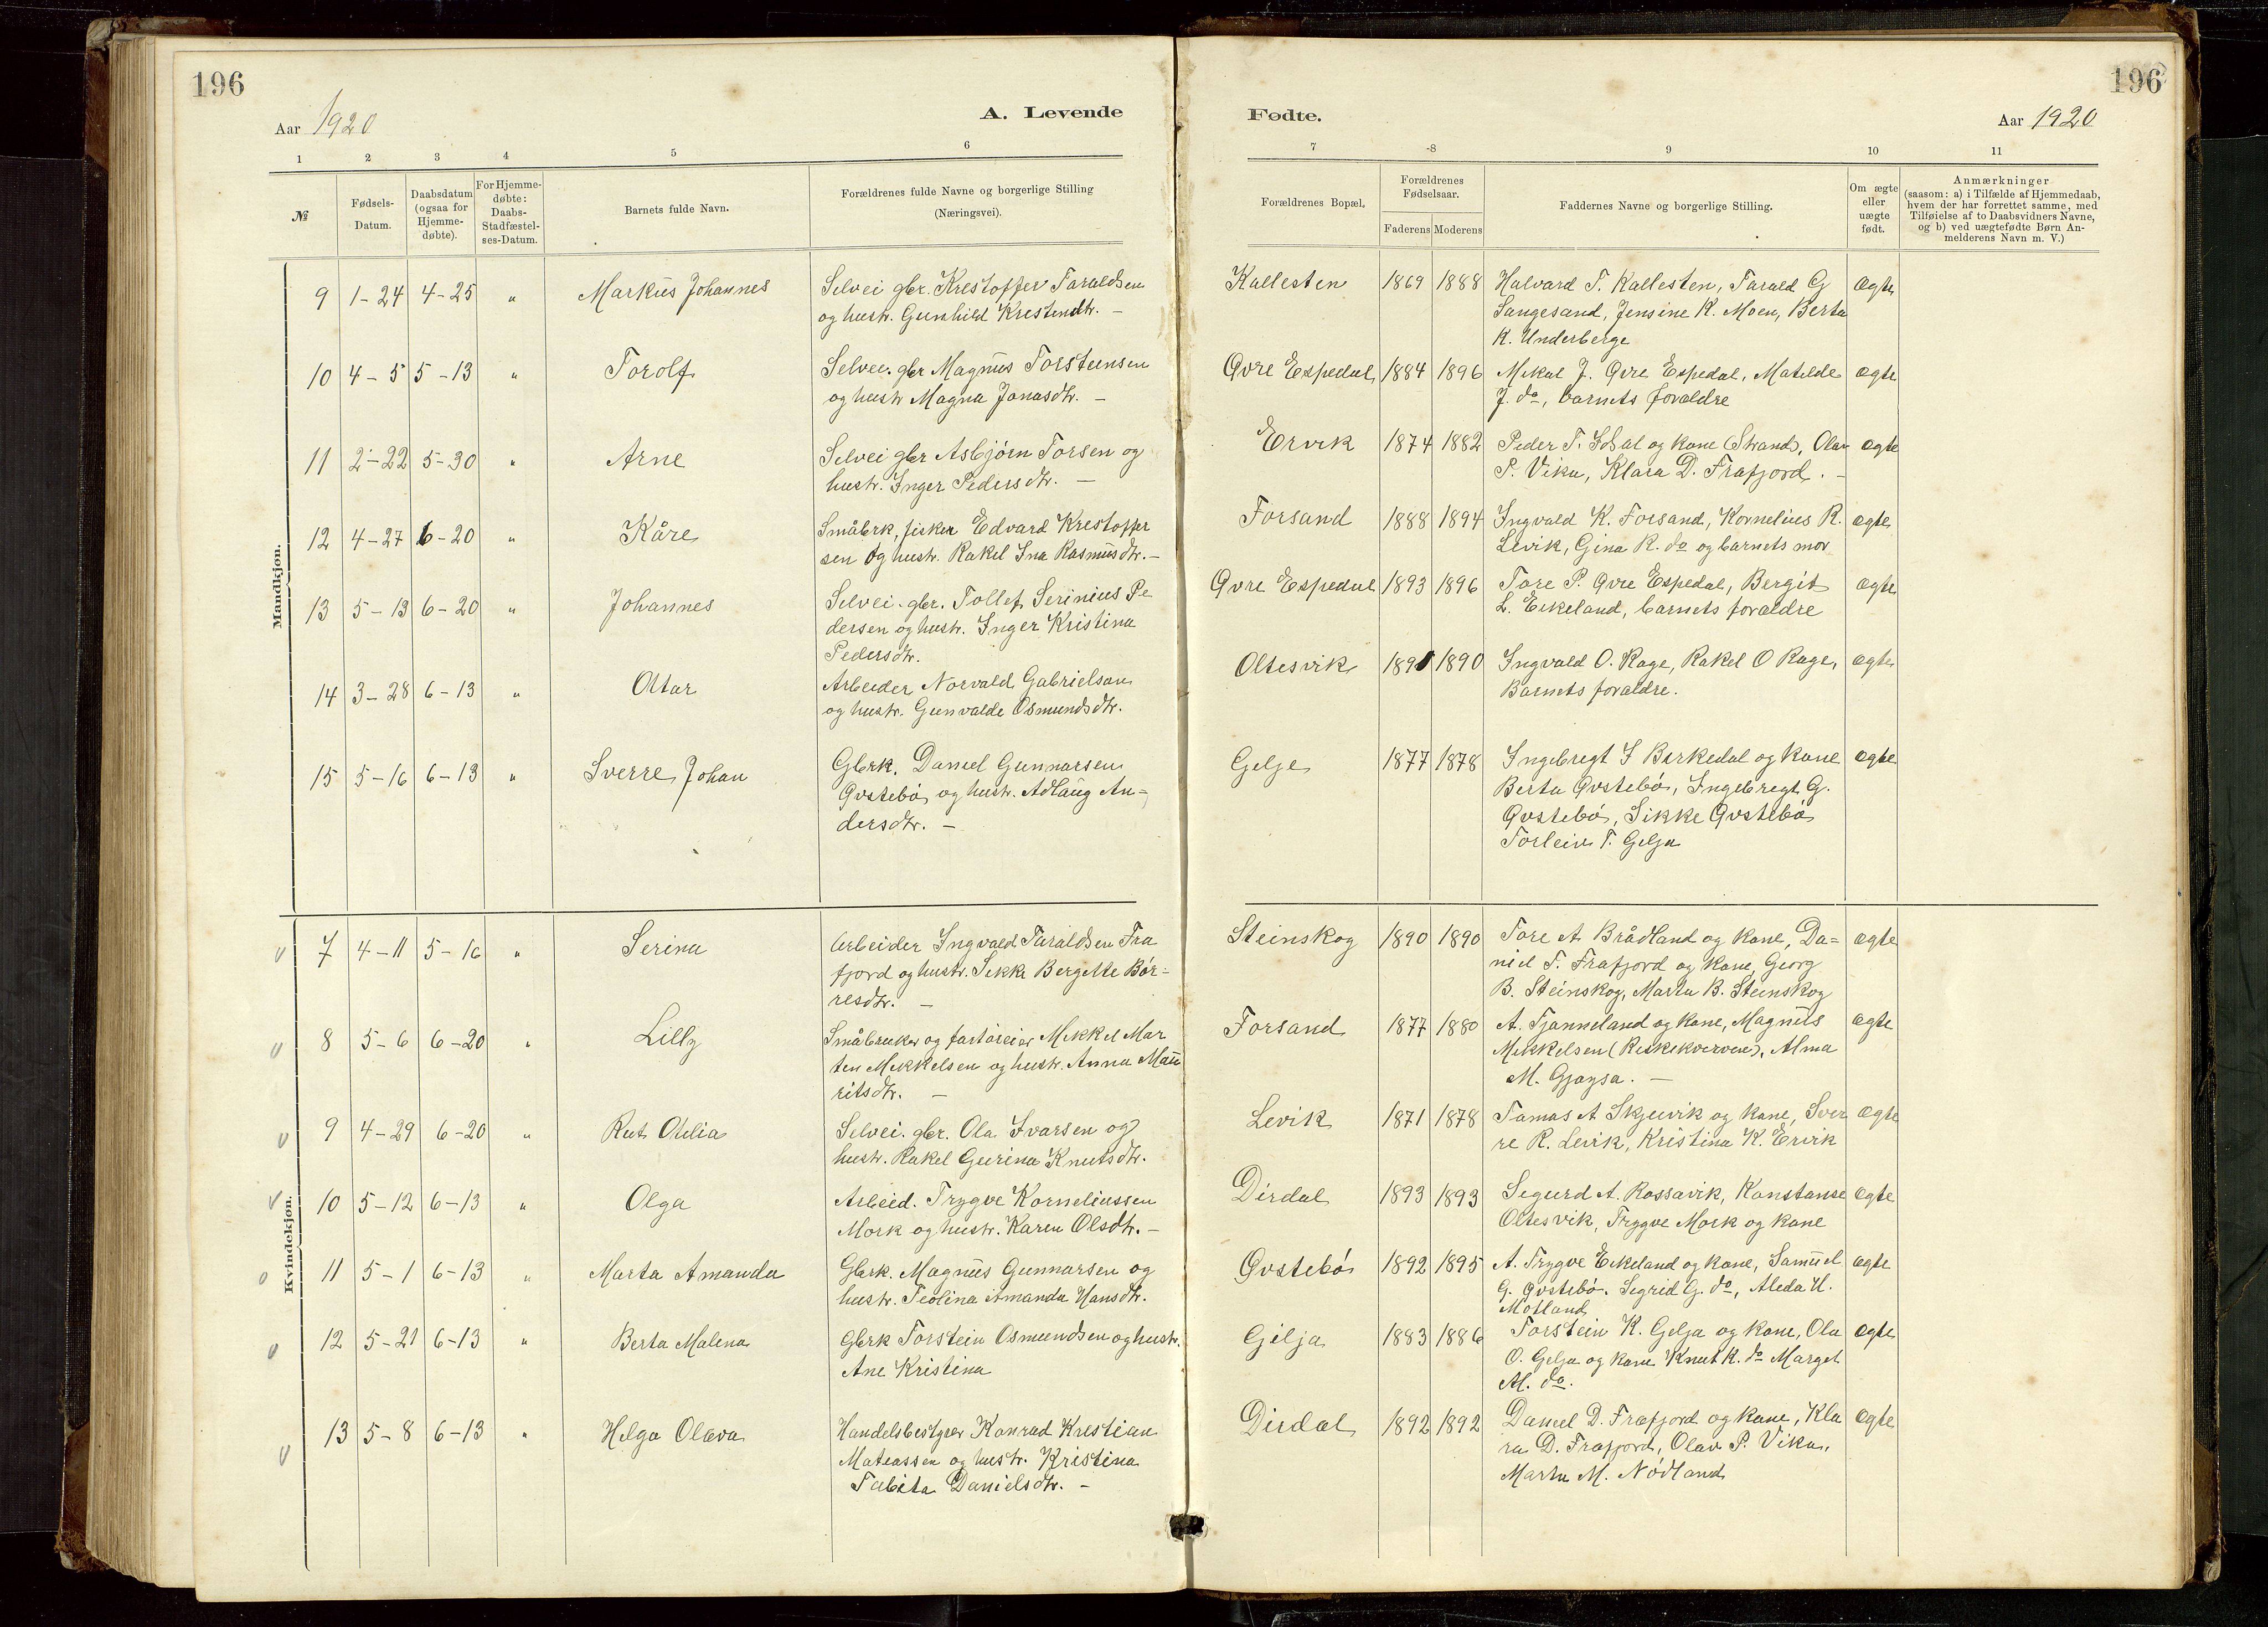 196
Aar 1920
A. Levende
1 2 3 4 5 6
№
Fødsels-
Datum.
Daabsdatum
(ogsaa for
Hjemme-
døbte).
For Hjemme-
døbte:
Daabs-
Stadfæstel-
ses-Datum.
Barnets fulde Navn.
Forældrenes fulde Navne og borgerlige Stilling
(Næringsvei).
Mandkjøn.
9 1-24 4-25 " Markus Johannes Selvei gbr. Krestoffer Taraldsen
og hustr. Gunhild Krestendtr. -
10 4-5 5-13 " Torolf Selvei. gbr Magnus Torsteinsen
og hustr Magna Jonasdtr. -
11 2-22 5-30 " Arne Selvei gbr Asbjørn Torsen og
hustr. Inger Pedersdtr. -
12 4-27 6-20 " Kåre Småbrk, fisker Edvard Krestoffer
sen og hustr. Rakel Ina Rasmusdtr. -
13 5-13 6-20 " Johannes Selvei. gbr. Tollef Serinius Pe
dersen og hustr. Inger Kristina
Pedersdtr.
14 3-28 6-13 " Ottar Arbeider Norvald Gabrielsen
og hustr. Gunvalde Osmundsdtr.
15 5-16 6-13 " Sverre Johan Gbrk. Daniel Gunnarsen
Øvstebø og hustr. Adlaug An-
dersdtr. -
Kvindekjøn.
7 4-11 5-16 " Serina Arbeider Ingvald Taraldsen Fra
fjord og hustr. Sikke Bergitte Bør-
resdtr. -
8 5-6 6-20 " Lilly Småbruker og fartøieier Mikkel Mar
ten Mikkelsen og hustr. Anna Mau
ritsdtr. -
9 4-29 6-20 " Rut Otilia Selvei. gbr. Ola Ivarsen og
hustr. Rakel Gurina Knutsdtr.
10 5-12 6-13 " Olga Arbeid. Trygve Korneliussen
Mork og hustr. Karen Olsdtr. -
11 5-1 6-13 " Marta Amanda Gbrk. Magnus Gunnarsen og
hustr. Teolina Amanda Hansdtr.
12 5-21 6-13 " Berta Malena Gbrk Torstein Osmundsen og hustr.
Ane Kristina
13 5-8 6-13 " Helga Olava Handelsbestyrer Konrad Krestian
Mateassen og hustr. Kristina
Tabita Danielsdtr. -
196
Fødte.
Aar 1920
7 8 9 10 11
Forældrenes Bopæl.
Forældrenes
Fødselsaar.
Faderens Moderens
Faddernes Navne og borgerlige Stilling.
Om ægte
eller
uægte
født.
Anmærkninger
(saasom: a) i Tilfælde af Hjemmedaab,
hvem der har forrettet samme, med
Tilføielse af to Daabsvidners Navne,
og b) ved uægtefødte Børn An-
melderens Navn m. V.)
Kallesten 1869 1888 Halvard T. Kallesten, Tarald G ægte
Sangesand, Jensine K. Moen, Berta
K. Underberge
Øvre Espedal 1884 1896 Mikal J. Øvre Espedal, Matilde ægte
J. do, barnets forældre
Ervik 1874 1882 Peder T. Idsal og kone (Strand), Olav ægte
P. Vika, Klara D. Frafjord. -
Forsand 1888 1894 Ingvald K. Forsand, Kornelius R. ægte
Levik, Gina R. do og barnets mor
Øvre Espedal 1893 1896 Tore P. Øvre Espedal, Bergit ægte
L. Eikeland, barnets forældre
Oltesvik 1891 1890 Ingvald O. Rage, Rakel O Rage, ægte
Barnets forældre.
Gelje 1877 1878 Ingebregt I Berkedal og kone ægte
Berta Øvstebø, Ingebregt G.
Øvstebø, Sikke Øvstebø
Torleiv T. Gelja
Steinskog 1890 1890 Tore A Brådland og kone, Da= ægte
niel T. Frafjord og kone, Georg
B. Steinskog, Marta B. Steinskog
Forsand 1877 1880 A. Tjanneland og kone, Magnus ægte
Mikkelsen (Reskekverven), Alma
M. Gjøysa. -
Levik 1871 1878 Tamas A Skjeivik og kone, Sver ægte
re R. Levik, Kristina K. Ervik
Dirdal 1893 1893 Segurd A. Rossavik, Konstanse ægte
Oltesvik, Trygve Mork og kone
Øvstebø 1892 1895 A. Trygve Eikeland og kone, Samuel ægte
G. Øvstebø. Segrid G. do, Aleda H.
Motland
Gilja 1883 1886 Torstein K. Gelja og kone, Ola ægte
O. Gelja og kone Knut K. do Marget
M. do.
Dirdal 1892 1892 Daniel D. Frafjord og kone, Kla ægte
ra D. Frafjord, Olav P. Vika,
Marta M. Nødland